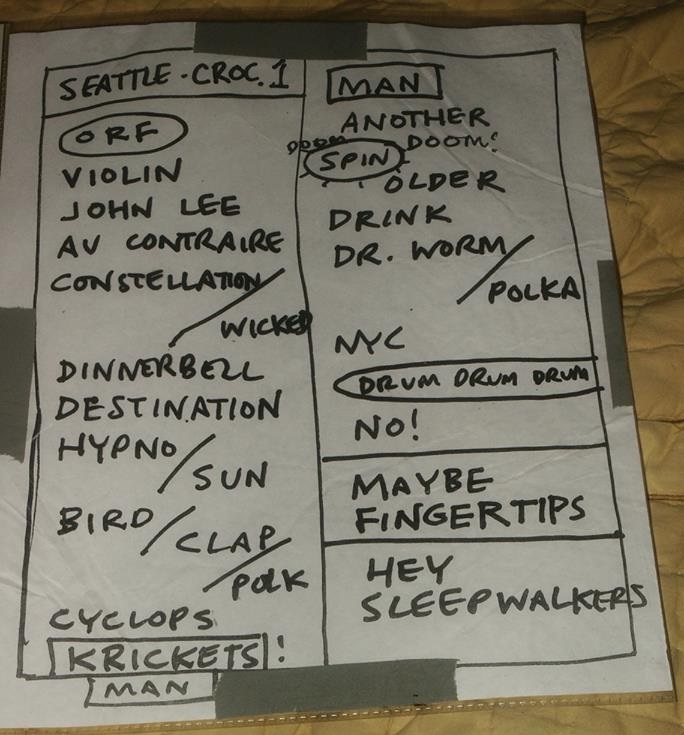 SEATTLE - CROC. 1
ORF
VIOLIN
JOHN LEE
AU CONTRAIRE
CONSTELLATION /
WICKED
DINNERBELL
DESTINATION
HYPNO /
SUN
BIRD /
CLAP /
POLK
CYCLOPS
KRICKETS!
MAN
MAN
ANOTHER
DOOM DOOM!
SPIN
OLDER
DRINK
DR. WORM /
POLKA
NYC
DRUM DRUM DRUM
NO!
MAYBE
FINGERTIPS
HEY
SLEEPWALKERS